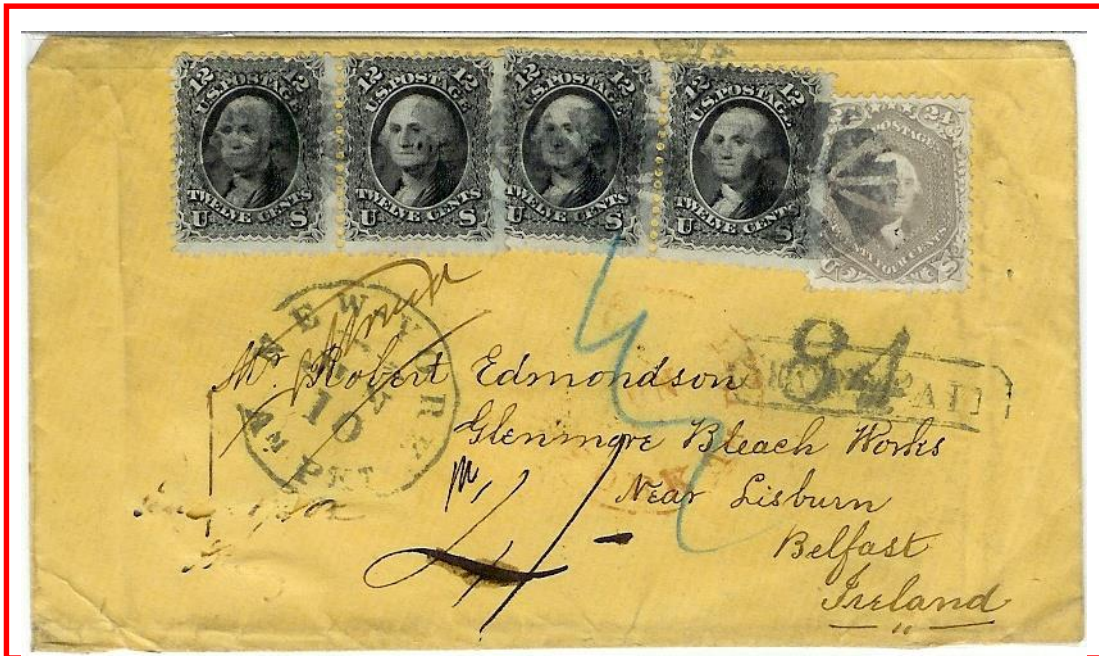 12 U.S.POSTAGE 12
TWELVE CENTS
U S
12 U.S.POSTAGE 12
TWELVE CENTS
U S
12 U.S.POSTAGE 12
TWELVE CENTS
U S
12 U.S.POSTAGE 12
TWELVE CENTS
U S
24 POSTAGE 24
TWENTY FOUR CENTS
U S
NEW YORK
10
AM PKT
84
PAID
Mr. Robert Edmondson
Glenmore Bleach Works
Near Lisburn
Belfast
Ireland
4/-